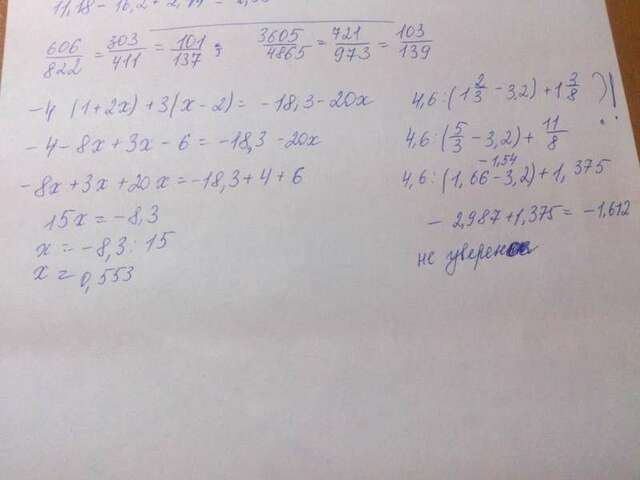 606/822 = 303/411 = 101/137 ; 3605/4865 = 721/973 = 103/139
-4 (1+2x)+3(x-2)= -18,3-20x
-4-8x+3x-6=-18,3-20x
-8x+3x+20x=-18,3+4+6
15x=-8,3
x=-8,3:15
x=0,553
4,6:(1 2/3 -3,2)+1 3/8
4,6:(5/3 -3,2)+ 11/8
-1,54
4,6:(1,66-3,2)+1,375
-2,987+1,375=-1,612
не уверен